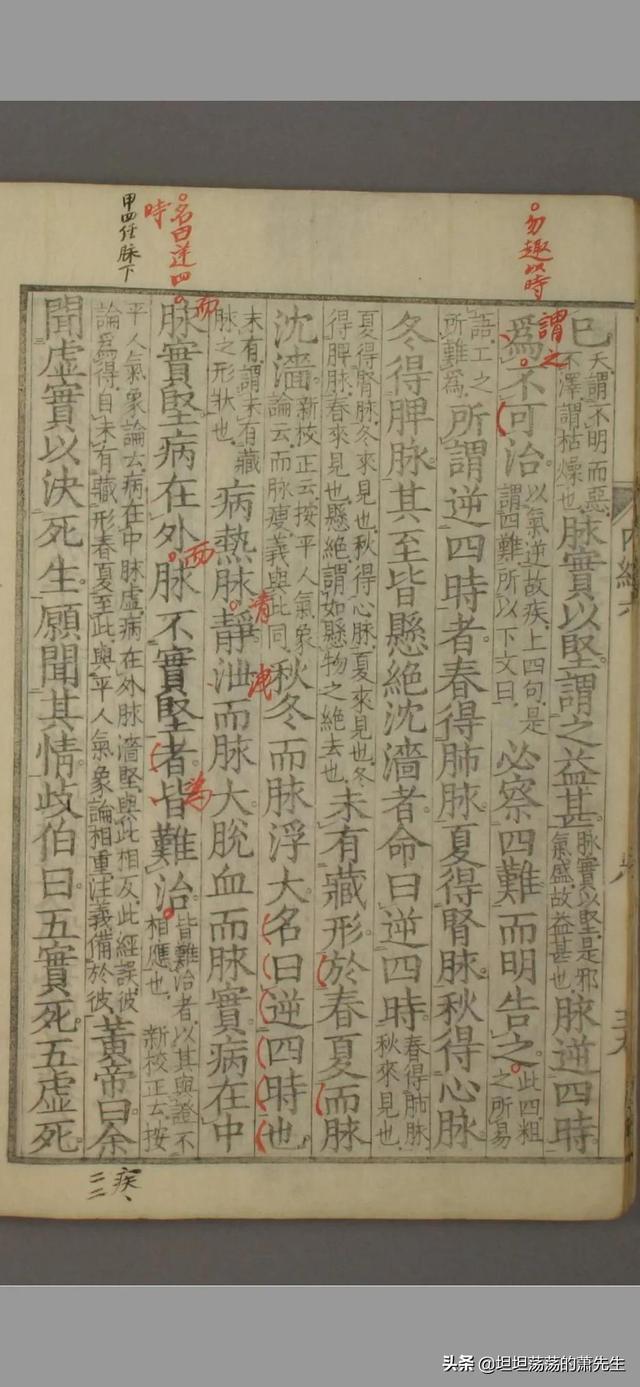 。勿趣以時
謂之
内經六
已夭謂不明而惡不澤謂枯燥也脉實以堅謂之益甚脉實以堅是邪氣盛故益甚也脉逆四時
爲不可治以氣逆故疾上四句是謂四難所以下文曰必察四難而明告之此四粗之所易
語工之所難爲所謂逆四時者春得肺脉夏得腎脉秋得心脉
冬得脾脉其至皆懸絶沈濇者命曰逆四時春得肺脉秋來見也
夏得腎脉冬來見也秋得心脉夏來見也冬得脾脉春來見也懸絶謂如懸物之絶去也未有藏形於春夏而脉
沈濇新校正云按平人氣象論云而脉瘦義與此同秋冬而脉浮大名曰逆四時也
清
洩
未有謂未有藏脉之形狀也病熱脉靜泄而脉大脫血而脉實病在中
。名曰逆四時
而
而
爲
脉實堅病在外脉不實堅者皆難治皆難治者以其與證不相應也新校正云按
甲四
脉下
平人氣象論云病在中脉虛病在外脉濇堅與此相反此經誤彼論爲得自未有藏形春夏至此與平人氣象論相重注義備於彼黃帝曰余
聞虛實以決死生願聞其情歧伯曰五實死五虛死
疾
頭条 @坦坦荡荡的萧先生